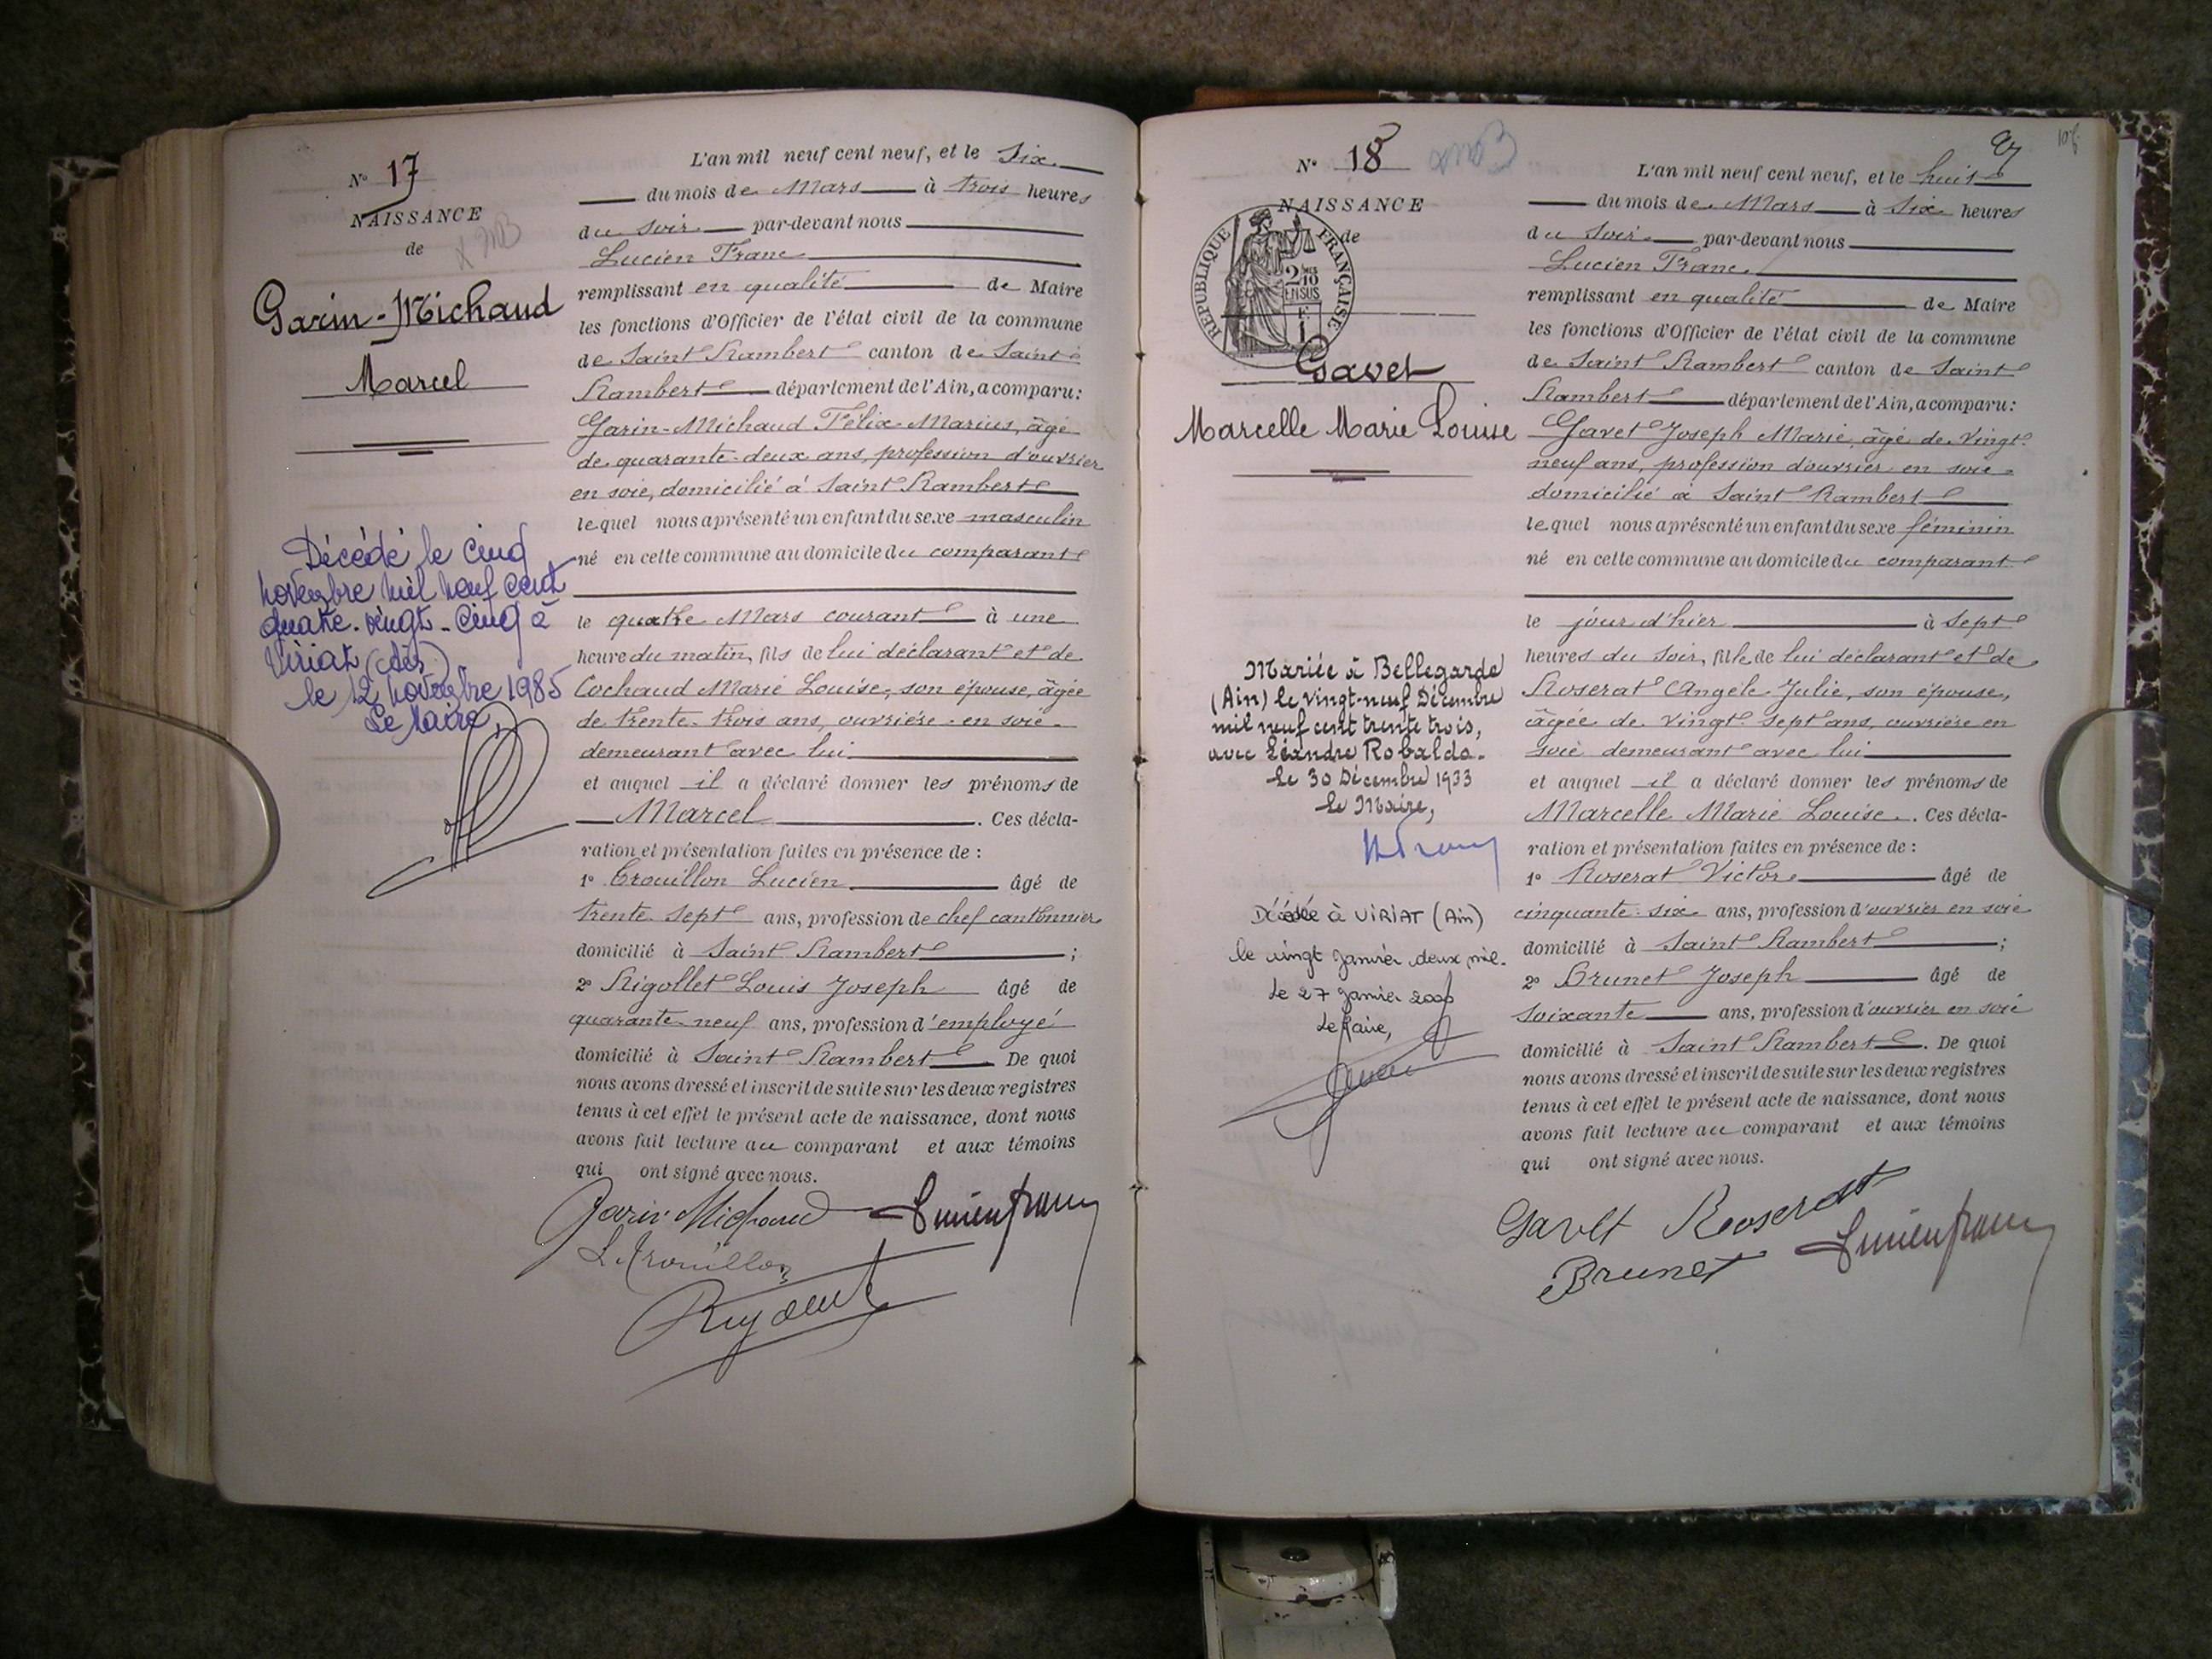 N° 17
NAISSANCE
de
Garin-Michaud
Marcel
Décédé le cinq
novembre mil neuf cent
quatre-vingt-cinq à
Viriat (Ain)
le 12 novembre 1985
Le Maire,
L'an mil neuf cent neuf, et le six
du mois de Mars à trois heures
du soir par-devant nous
Lucien Franc
remplissant en qualité de Maire
les fonctions d'Officier de l'état civil de la commune
de Saint Rambert canton de Saint
Rambert département de l'Ain, a comparu:
Garin-Michaud Félix-Marius, âgé
de quarante-deux ans, profession d'ouvrier
en soie, domicilié à Saint Rambert
lequel nous a présenté un enfant du sexe masculin
né en cette commune au domicile du comparant
le quatre Mars courant à une
heure du matin, fils de lui déclarant et de
Cochaud Marie Louise, son épouse, âgée
de trente-trois ans, ouvrière en soie
demeurant avec lui
et auquel il a déclaré donner les prénoms de
Marcel. Ces décla-
ration et présentation faites en présence de :
1° Trouillon Lucien âgé de
trente sept ans, profession de chef cantonnier
domicilié à Saint Rambert ;
2° Rigollet Louis Joseph âgé de
quarante-neuf ans, profession d'employé
domicilié à Saint Rambert. De quoi
nous avons dressé et inscrit de suite sur les deux registres
tenus à cet effet le présent acte de naissance, dont nous
avons fait lecture au comparant et aux témoins
qui ont signé avec nous.
Garin Michaud Lucien franc
L. Trouillon
N° 18
NAISSANCE
de
RÉPUBLIQUE FRANÇAISE
2/10 EN SUS
Gavet
Marcelle Marie Louise
Mariée à Bellegarde
(Ain) le vingt-neuf Décembre
mil neuf cent trente trois,
avec Léandre Robaldo.
Le 30 Décembre 1933
Le Maire,
Décédée à VIRIAT (Ain)
le vingt janvier deux mil.
Le 27 janvier 2000
Le Maire,
L'an mil neuf cent neuf, et le huit
du mois de Mars à six heures
du soir par-devant nous
Lucien Franc
remplissant en qualité de Maire
les fonctions d'Officier de l'état civil de la commune
de Saint Rambert canton de Saint
Rambert département de l'Ain, a comparu:
Gavet Joseph Marie, âgé de vingt-
neuf ans, profession d'ouvrier en soie
domicilié à Saint Rambert
lequel nous a présenté un enfant du sexe féminin
né en cette commune au domicile du comparant
le jour d'hier à sept
heures du soir, fille de lui déclarant et de
Roserat Angèle Julie, son épouse,
âgée de vingt sept ans, ouvrière en
soie demeurant avec lui
et auquel il a déclaré donner les prénoms de
Marcelle Marie Louise. Ces décla-
ration et présentation faites en présence de :
1° Roserat Victor âgé de
cinquante-six ans, profession d'ouvrier en soie
domicilié à Saint Rambert ;
2° Brunet Joseph âgé de
soixante ans, profession d'ouvrier en soie
domicilié à Saint Rambert. De quoi
nous avons dressé et inscrit de suite sur les deux registres
tenus à cet effet le présent acte de naissance, dont nous
avons fait lecture au comparant et aux témoins
qui ont signé avec nous.
Gavet Roserat
Brunet Lucien franc